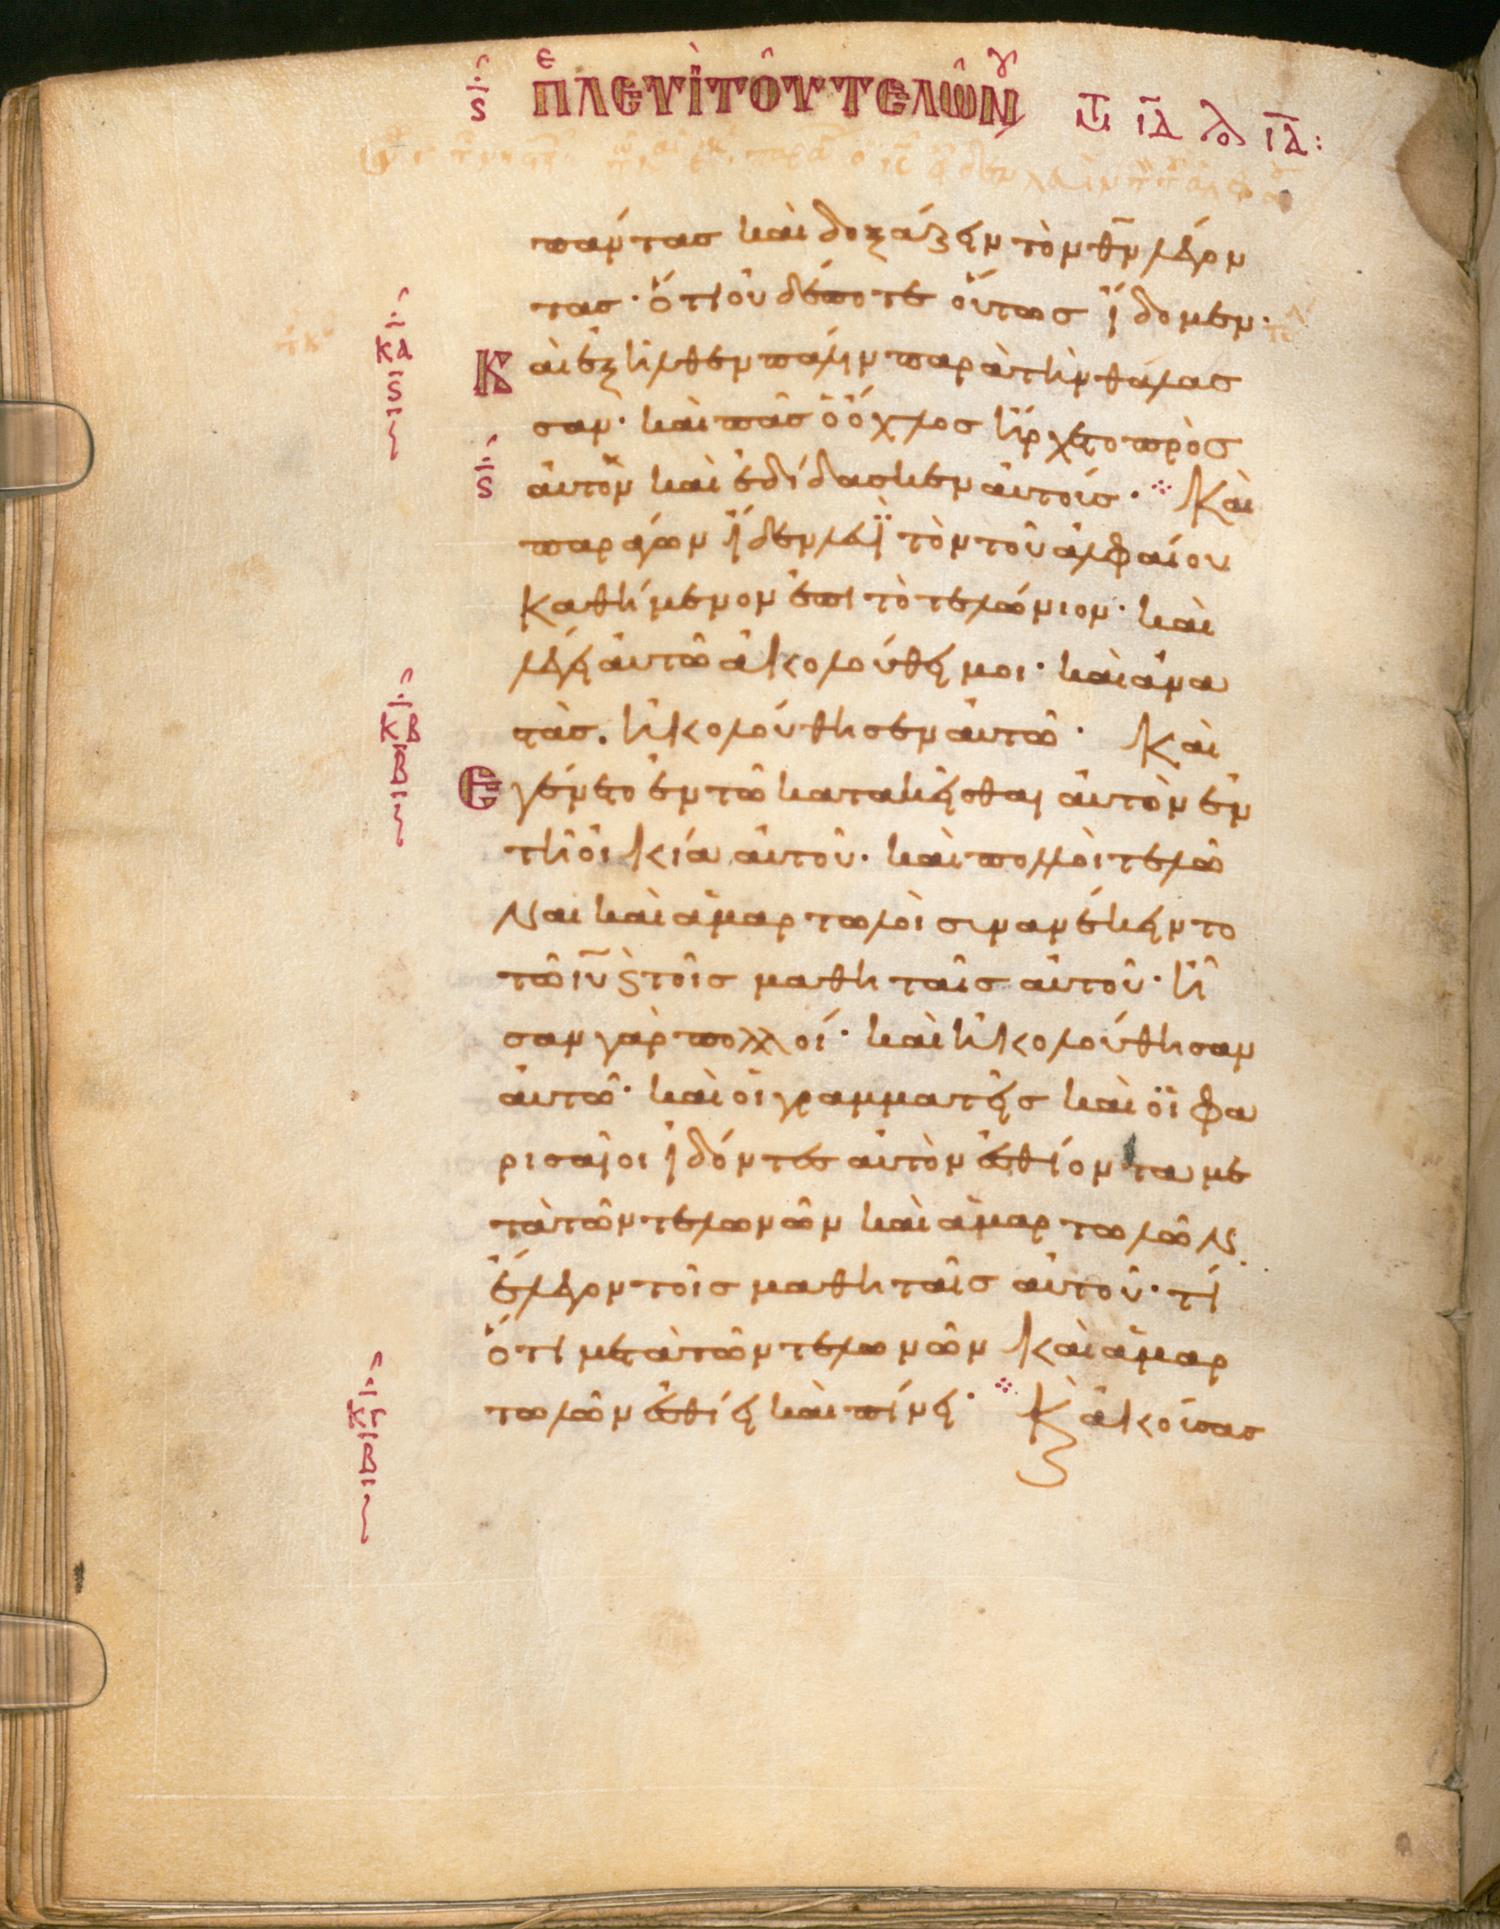 ϛ πε λευὶ τοῦ τελών τι ια λο ια:
πάντας καὶ δοξάζειν τὸν θν λέγον
τας· ὅτι οὐδέποτε οὕτως ἴδομεν·
Καὶ ἐξῆλθεν πάλιν παρὰ τὴν θάλασ
σαν· καὶ πᾶς ὁ ὄχλος ἤρχετο πρὸς
αὐτὸν καὶ ἐδίδασκεν αὐτοίς· Καὶ
παράγων ἴδεν λευῒ τὸν τοῦ ἀλφαίου
καθήμενον ἐπὶ τὸ τελώνιον· καὶ
λέγει αὐτῶ ἀκολούθει μοι· καὶ ἀνα
τὰς. ἠκολούθησεν αὐτῶ· Καὶ
Εγένετο ἐν τῶ κατακεῖσθαι αὐτὸν ἐν
τῆ οἰκία αὐτοῦ· καὶ πολλοὶ τελῶ
ναι καὶ ἁμαρτωλοὶ σιναμέκειντο
τῶ ιυ ϛ τοῖς μαθηταῖς αὐτοῦ· ἦ
σαν γὰρ πολλοί· καὶ ἠκολούθησαν
αὐτῶ· καὶ οἱ γραμματεῖς καὶ οἱ φα
ρισαῖοι ἰδόντες αὐτὸν ἐσθίοντα με
τὰ τῶν τελωνῶν καὶ ἁμαρτωλῶν
ἔλεγον τοῖς μαθηταῖς αὐτοῦ· τί
ὅτι μετὰ τῶν τελωνῶν καὶ ἁμαρ
τωλῶν ἐσθίει καὶ πίνει· Κὰ ἀκούσας
κα
ϛ
ϛ
κβ
β
κγ
β